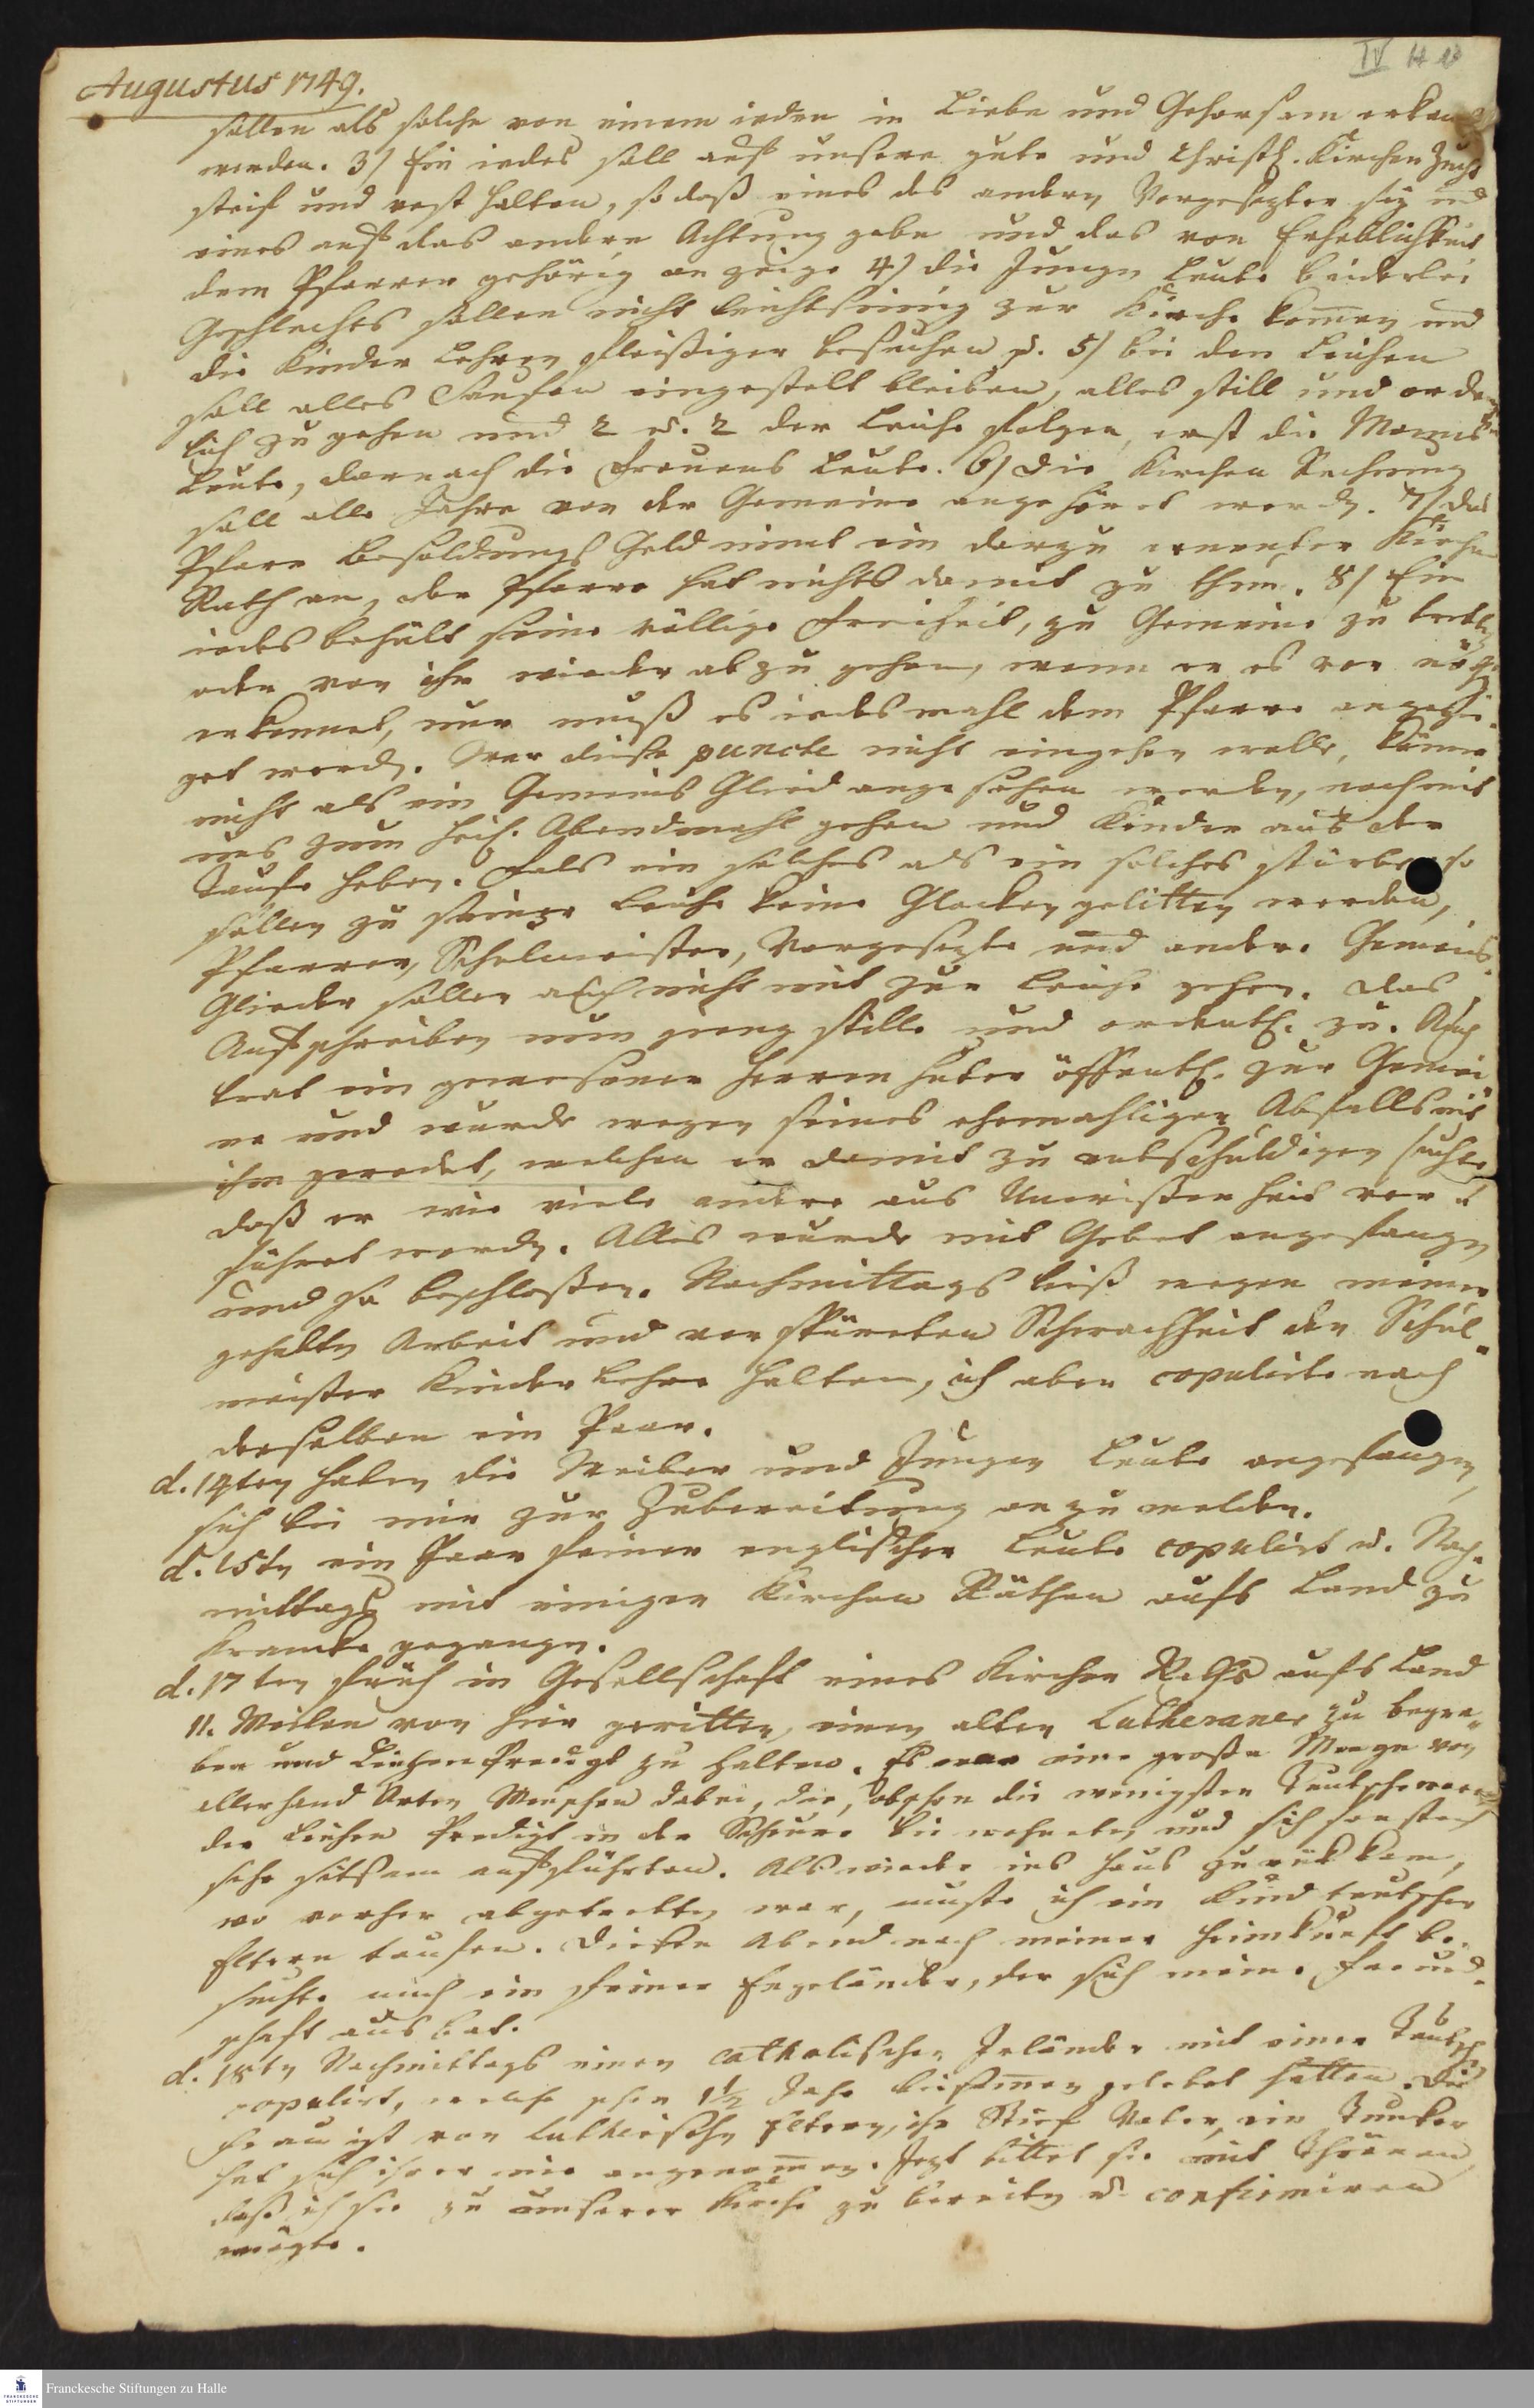 IV H 10
Augustus 1749.
sollen als solche von einem ieden in Liebe und Gehorsam erkant
werden. 3) Ein iedes soll auf unsere gute und Christl. Kirchen Zucht
steif und vest halten, so daß eines des andern Vorgesezter sey und
eines auf das andere Achtung gebe und das von Erheblichkeit
dem Pfarrer gehörig an zeige 4) die Junge Leute beiderlei
Geschlechts sollen nicht leichtsinnig zur Kirche komen und
die Kinder Lehren fleißiger besuchen p. 5) bei den Leichen
soll alles Saufen eingestelt bleiben, alles still und ordent
lich zu gehen und 2 u. 2 der Leiche folgen, erst die Manns
Leute, darnach die Frauens Leute. 6) Die Kirchen Rechnung
soll alle Jahre von der Gemeine angehöret werdn. 7) das
Pfarr Besoldungs Geld nimt ein darzu ernenter Kirchen
Rath an, der Pfarre hat nichts damit zu thun. 8) Ein
iedes behält seine völlige Freiheit, zu Gemeine zu tretten
oder von ihr wieder ab zu gehen, wenn er es vor nöthig
erkennet, nur muß es iedes mahl dem Pfarre angezei
get werdn. Wer diese puncte nicht eingehen wolle, könne
nicht als ein Gemeins Glied angesehen werden, noch mit
uns zum heil. Abendmahl gehen und Kinder aus der
Taufe heben. Fals ein solches als ein solches stürbe, so
sollen zu seiner Leiche keine Glocken gelitten werden,
Pfarrer, Schulmeister, Vorgesezte und andere Gemeins
Glieder sollen auch nicht mit zur Leiche gehen. Das
Aufschreiben nun gieng stille und ordentl. zu. Auch
trat ein gewesener Herrenhuter öffentl. zur Gemei
ne und wurde wegen seines ehemahligen Abfalls mit
ihm geredet, welchen er damit zu entschuldigen suchte
daß er wie viele andere aus Unwissenheit ver
führet wordn. Alles wurde mit Gebet angefangen
und so beschloßen. Nachmittags ließ wegen meiner
gehabten Arbeit und verspürten Schwachheit den Schul
meister Kinder Lehre halten, ich aber copulirte nach
derselben ein Paar.
d. 14ten haben die Weiber und Jungen Leute angefangen,
sich bei mir zur Zubereitung an zu melden.
d. 15tn ein Paar feiner englischer Leute copulirt u. Nach
mittags mit einigen Kirchen Räthen aufs Land zu
Krancke gegangen.
d. 17ten früh in Gesellschaft eines Kirchen Raths aufs Land
11. Meilen von hier geritten, einen alten Lutheraner zu begra
ben und Leichen Predigt zu halten. Es war eine große Menge von
allerhand Arten Menschen dabei, die, obschon die wenigsten Teutsche waren
der Leichen Predigt in der Scheure bei wohneten und sich sonsten
sehr sitsam aufführten. Als wieder ins Haus zurük kam,
wo vorher abgetretten war, muste ich ein Kind teutscher
Eltern taufen. Diesen Abend nach meiner Heimkunft be
suchte mich ein feiner Engeländer, der sich meine Freund
schaft aus bat.
d. 18tn Nachmittags einen catholischen Irländer mit einer Teutsch
copulirt, welche schon 1½ Jahr beisamen gelebet hatten. Die
Frau ist von Lutherischn Eltern, ihr Stief Vater, ein Tunker
hat sich ihrer nie angenomen. Jezt bittet sie mit Thränen,
daß ich sie zu unserer Kirche zu bereiten u. confirmiren
mögte.
Franckesche Stiftungen zu Halle